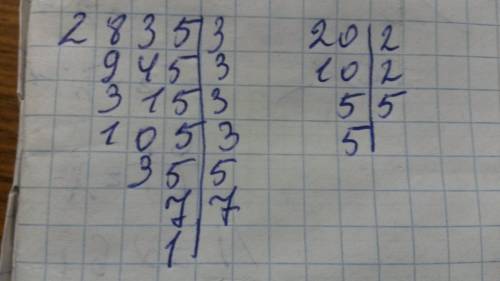 2835|3
945|3
315|3
105|3
35|5
7|7
1|
20|2
10|2
5|5
5|